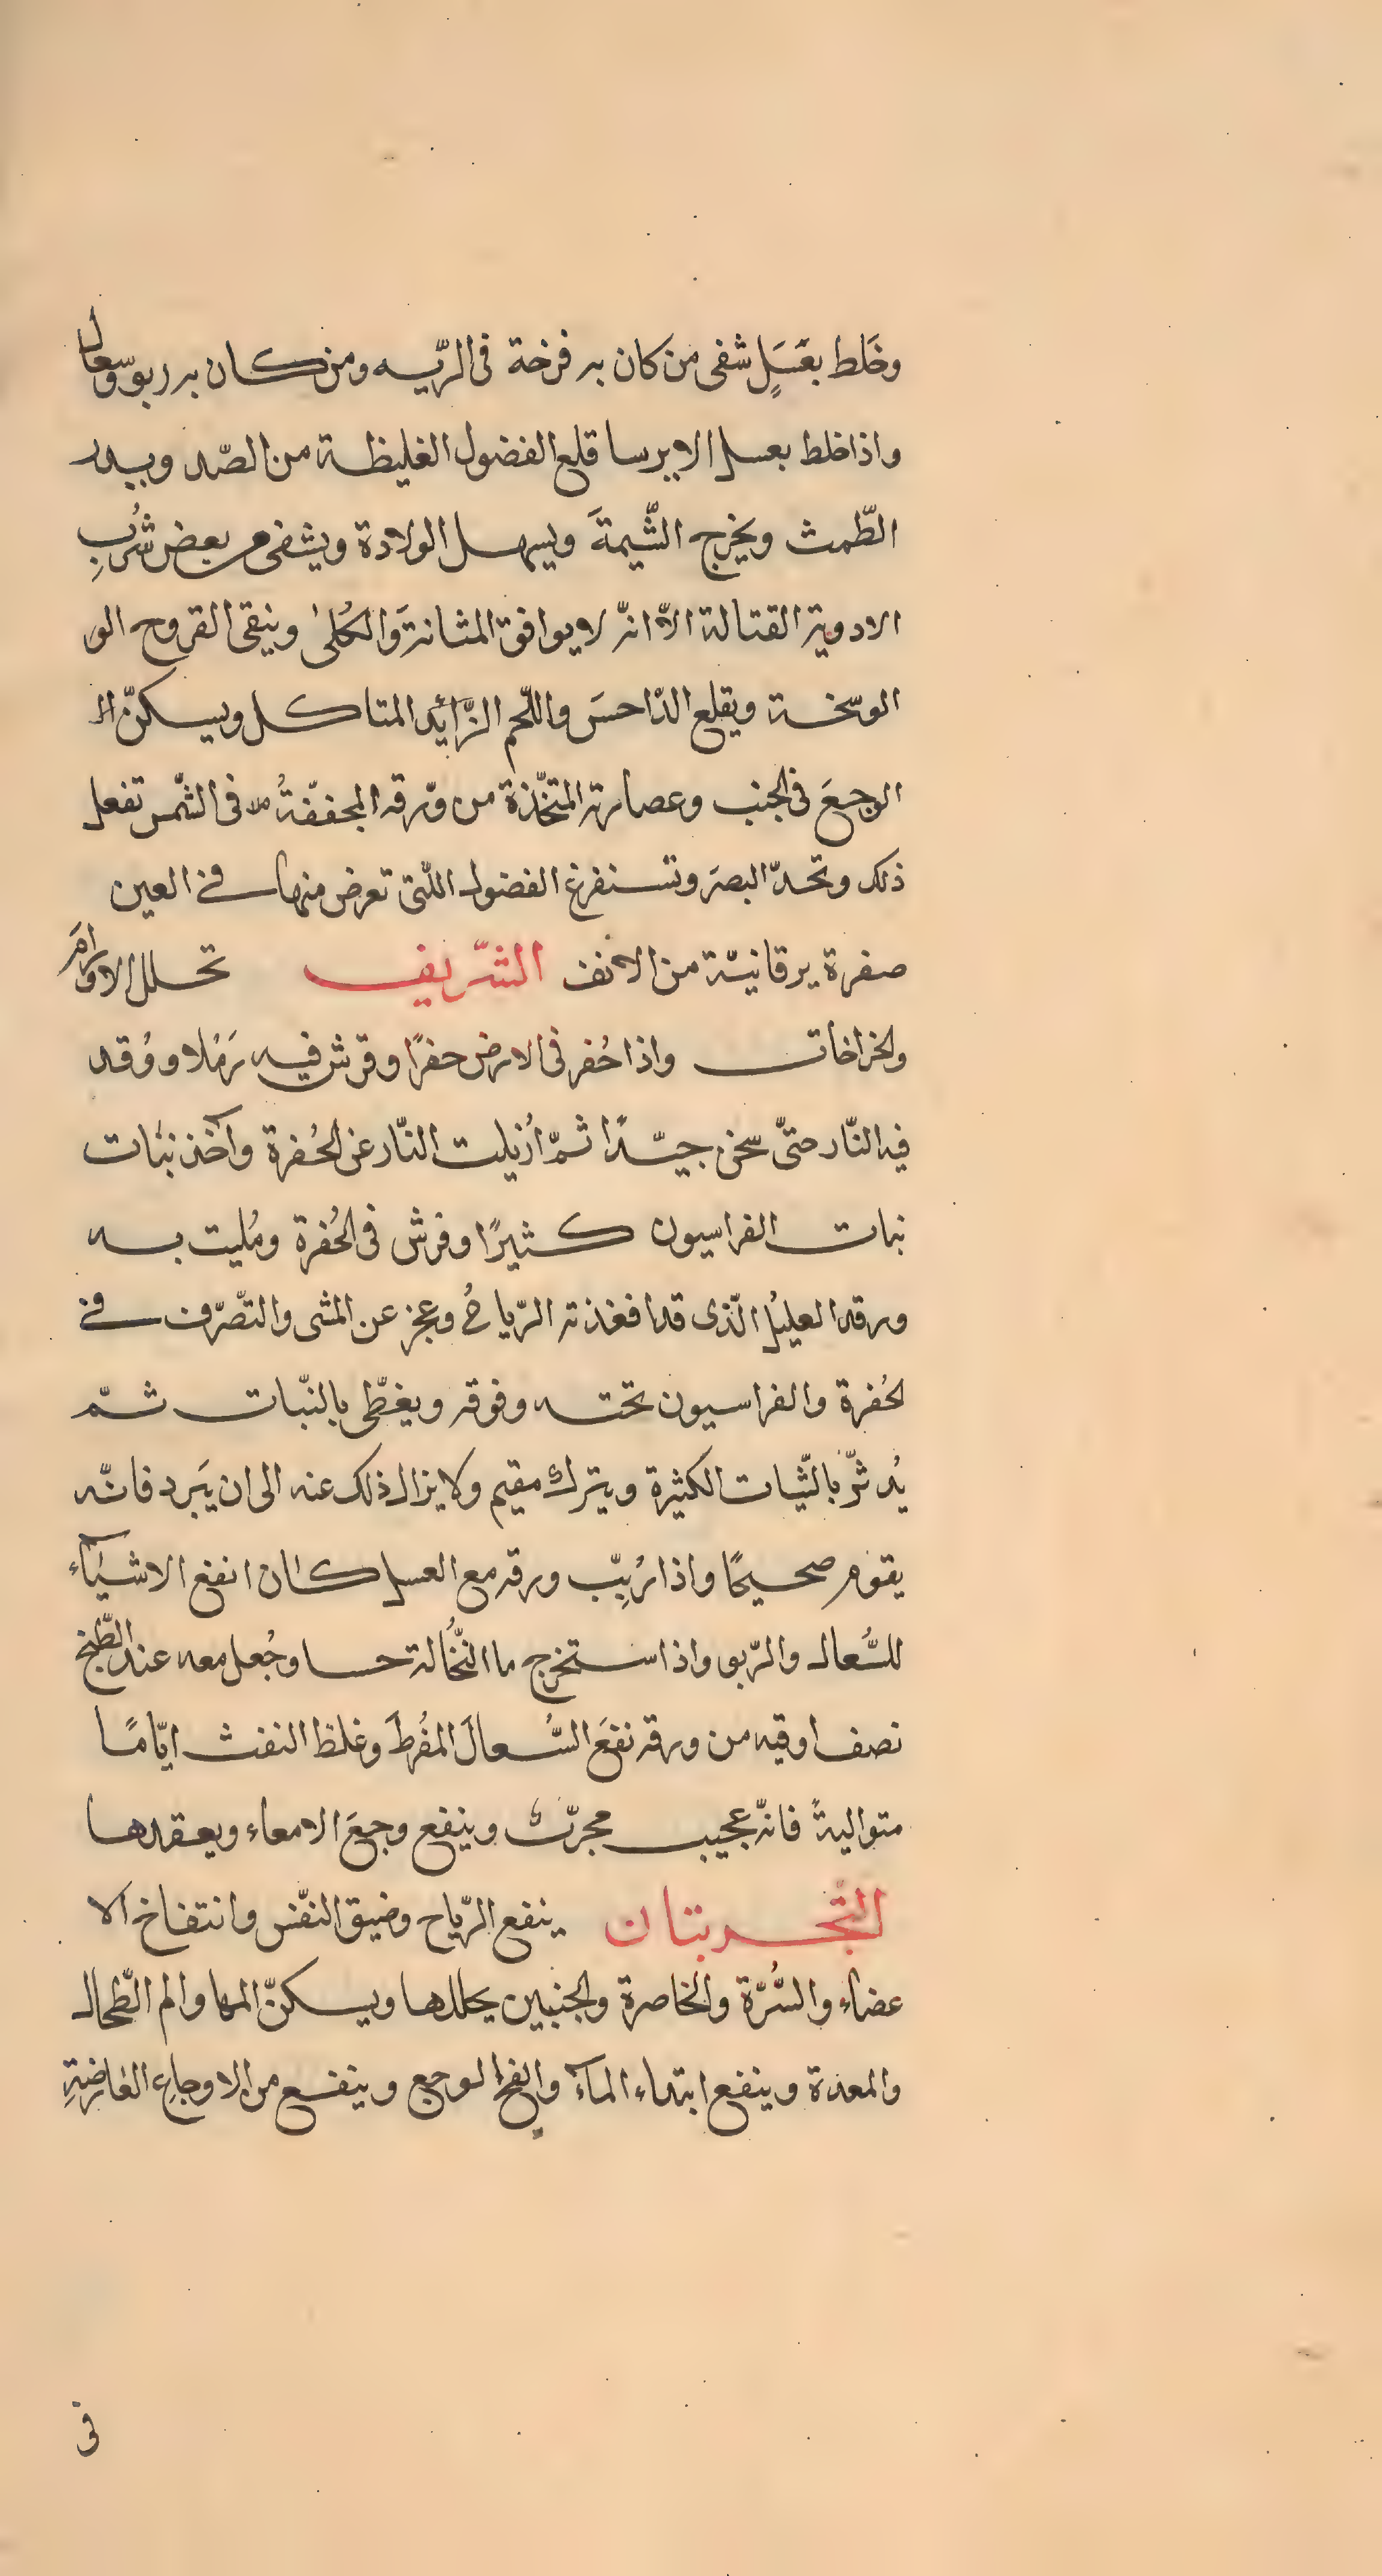 وخَلط بعَسَلٍ شفى من كان به فرخة فى الريّه ومن كان به ربو وسعال
واذا خلط بعسل الايرسا قلع الفضول الغليظة من الصّدر ويدر
الطّمث ويخرج الشّيمةَ ويسهل الولادة ويشفى من بعض شُربِ
الادوية القتالة الاّ انّه لا يوافق المثانة وَالكُلىٰ وينقى القروح الو
الوسّخة ويقلع الدّاحسَ واللّحم الزّائد المتاكل ويسكنّ ال
الوجعَ فى الجنب وعصارته المتخّذة من وّرقه المجففّةُ فى الشّمس تفعل
ذلك وتحدّ البصرَ وتستفرغ الفضول اللّتى تعرض منها فى العين
صفرة يرقانيّة من الانف الشّريف تحلل الاورامَ
والخراخات واذا حُفر فى الارض حفرًا وفرّش فيه رَمْلا ووُقد
فيه النّار حتىّ سخن جيّدًا ثمّ اُزيلت النّار عن الحُفرة وآخذ نبات
نبات الفراسيون كثيرًا وفرش فى الحُفرة ومُليت به
ورقد العليُل الّذى قد افغذته الرّياحُ وعجز عن المشى والتّصرّف فى
لحُفرة والفراسيون تحته وفوقه ويغطّى بالنّبات ثمّ
يُدثرّ بالثّيات الكثيرة ويترك مقيم ولا يزال ذلك عنه الى ان يَبرد فانّه
يقوم صحيحًا واذا رُبِبّ ورقه مع العسل كان انفع الاشيآء
للسُّعال والرّبو واذا استخرج ما النُّخالة حسا وجُعل معه عند الطّبخ
نصف اوقيه من ورقه نفعَ السُّعالَ المفُرطَ وغلظ النفث ايّامًا
متواليةً فانّه عجيب مجرّب وينفع وجعَ الامعاء ويعقدها
التّجربتان ينفع الرّياح وضيق النفّس وانتفاخ الا
عضاء والسُّرّة والخاصرة والجنبين يحللها ويسكنّ المها والم الطّحال
والمعدة وينفع ابتداء المآء والفخ الوجع وينفع من الاوجاع العَارضةِ
فى